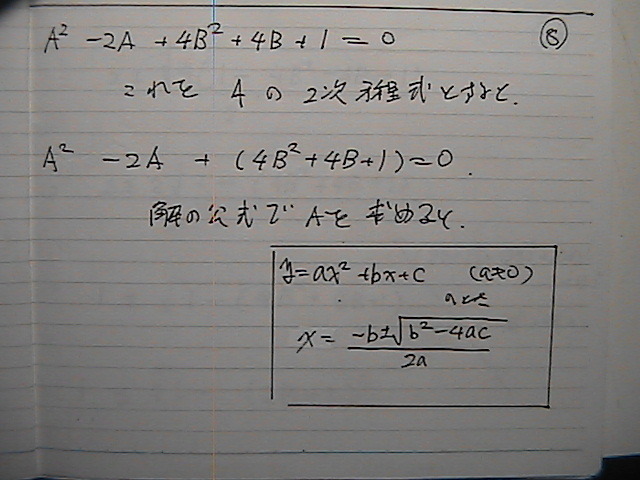 A² - 2A + 4B² + 4B + 1 = 0 ⑧
これを A の 2次方程式とすると.
A² - 2A + (4B² + 4B + 1) = 0.
解の公式で Aを 求めると.
y = ax² + bx + c (a≠0)
のとき
x = \frac{-b ± \sqrt{b² - 4ac}}{2a}